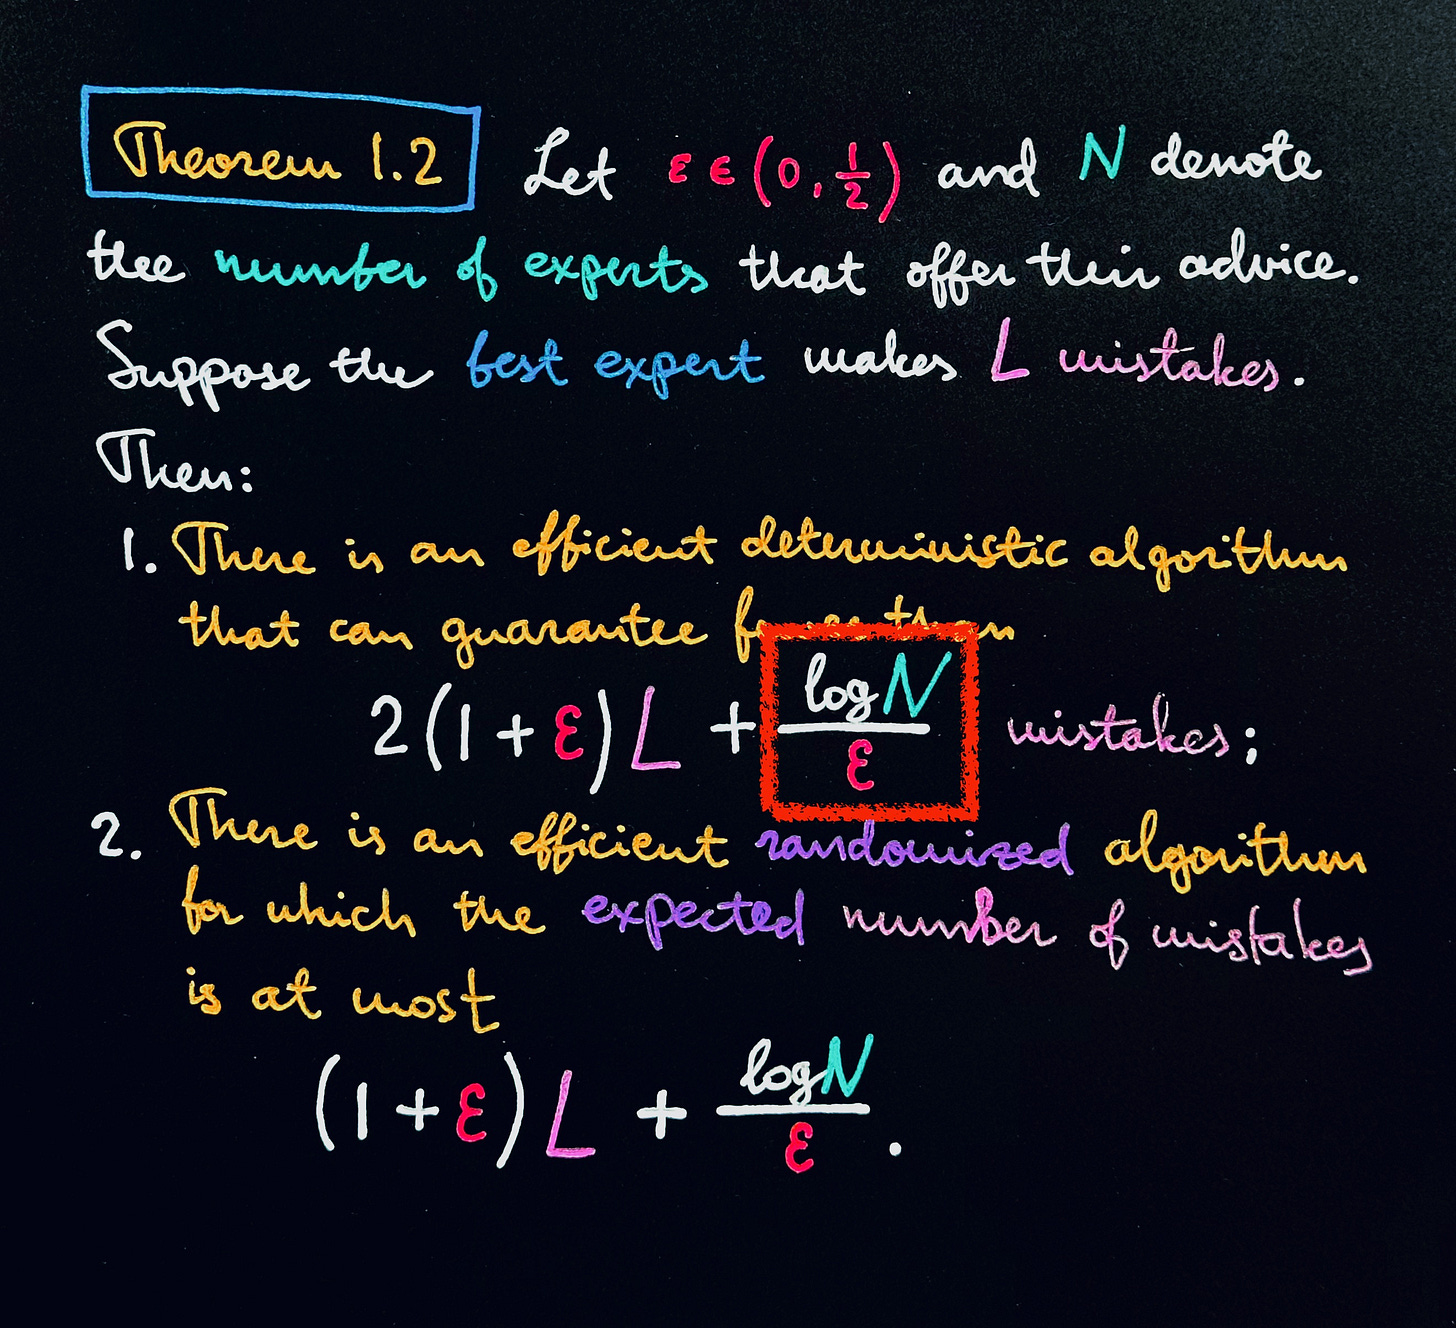 Theorem 1.2 Let ε ∈ (0, 1/2) and N denote
the number of experts that offer their advice.
Suppose the best expert makes L mistakes.
Then:
1. There is an efficient deterministic algorithm
that can guarantee fewer than
2(1 + ε)L + log N / ε mistakes;
2. There is an efficient randomized algorithm
for which the expected number of mistakes
is at most
(1 + ε)L + log N / ε .